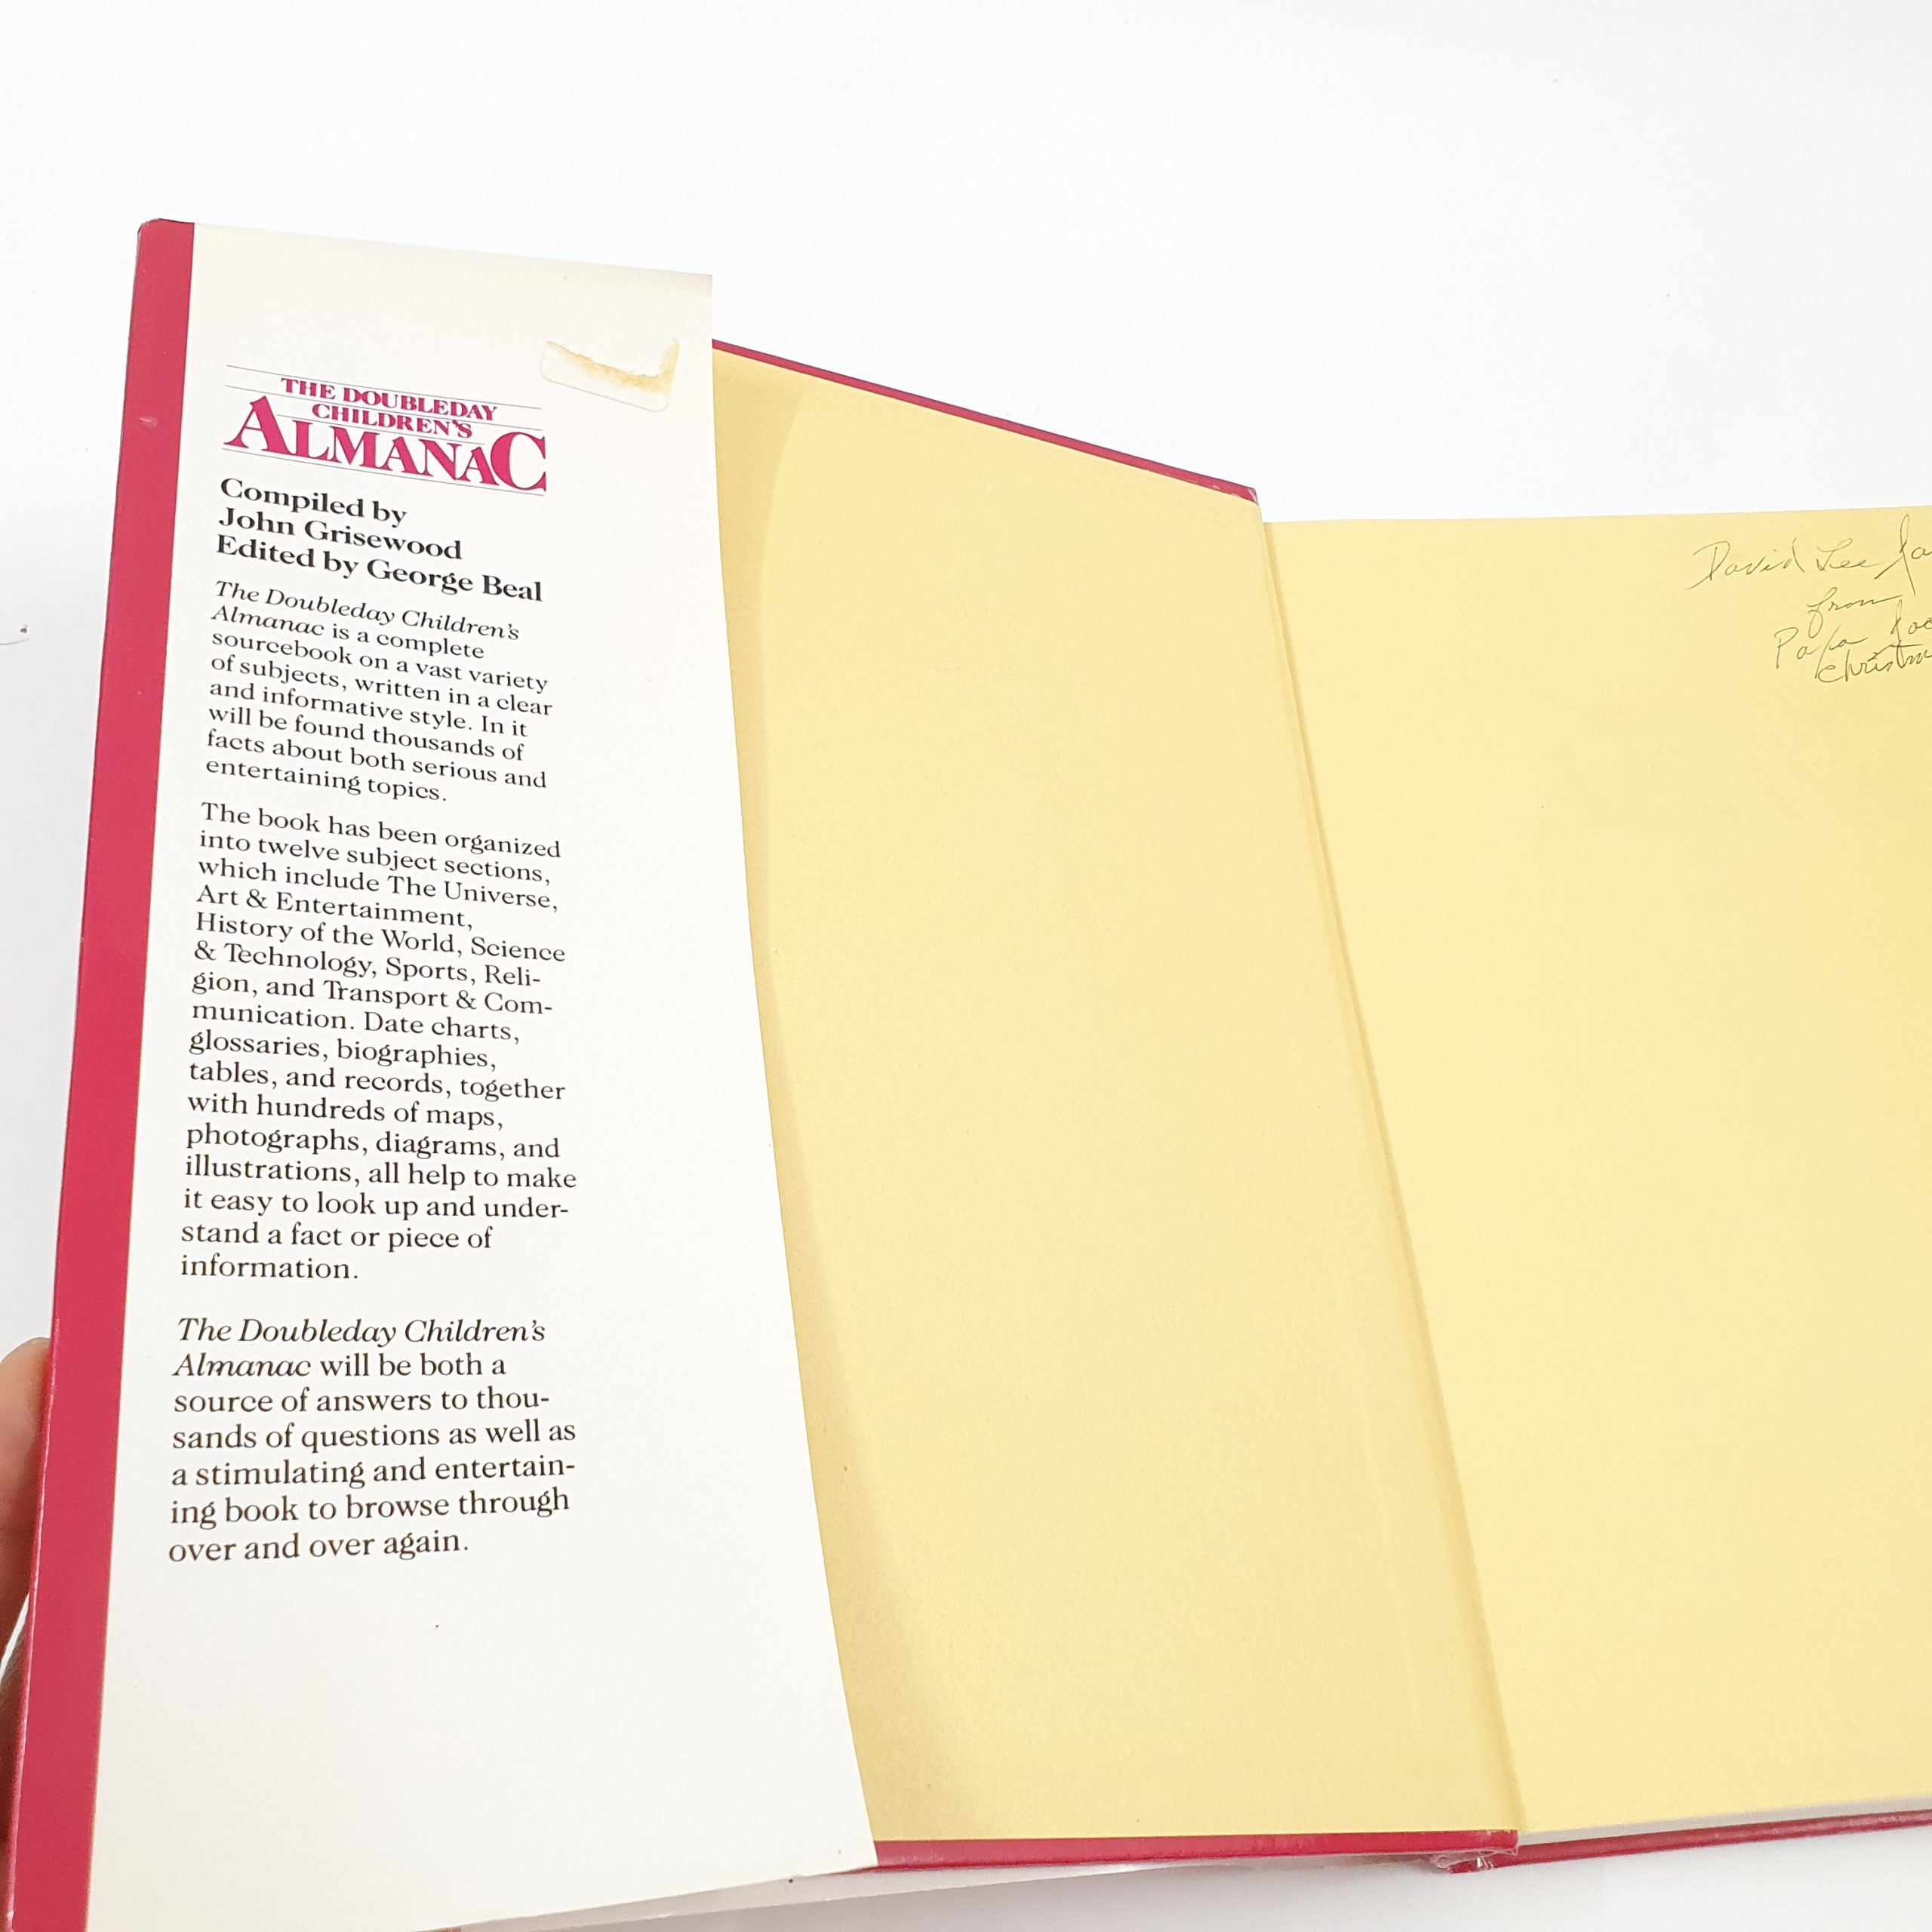 THE DOUBLEDAY
CHILDREN'S
ALMANAC
Compiled by
John Grisewood
Edited by George Beal
The Doubleday Children's
Almanac is a complete
sourcebook on a vast variety
of subjects, written in a clear
and informative style. In it
will be found thousands of
facts about both serious and
entertaining topics.
The book has been organized
into twelve subject sections,
which include The Universe,
Art & Entertainment,
History of the World, Science
& Technology, Sports, Reli-
gion, and Transport & Com-
munication. Date charts,
glossaries, biographies,
tables, and records, together
with hundreds of maps,
photographs, diagrams, and
illustrations, all help to make
it easy to look up and under-
stand a fact or piece of
information.
The Doubleday Children's
Almanac will be both a
source of answers to thou-
sands of questions as well as
a stimulating and entertain-
ing book to browse through
over and over again.
David Lee
from
Papa